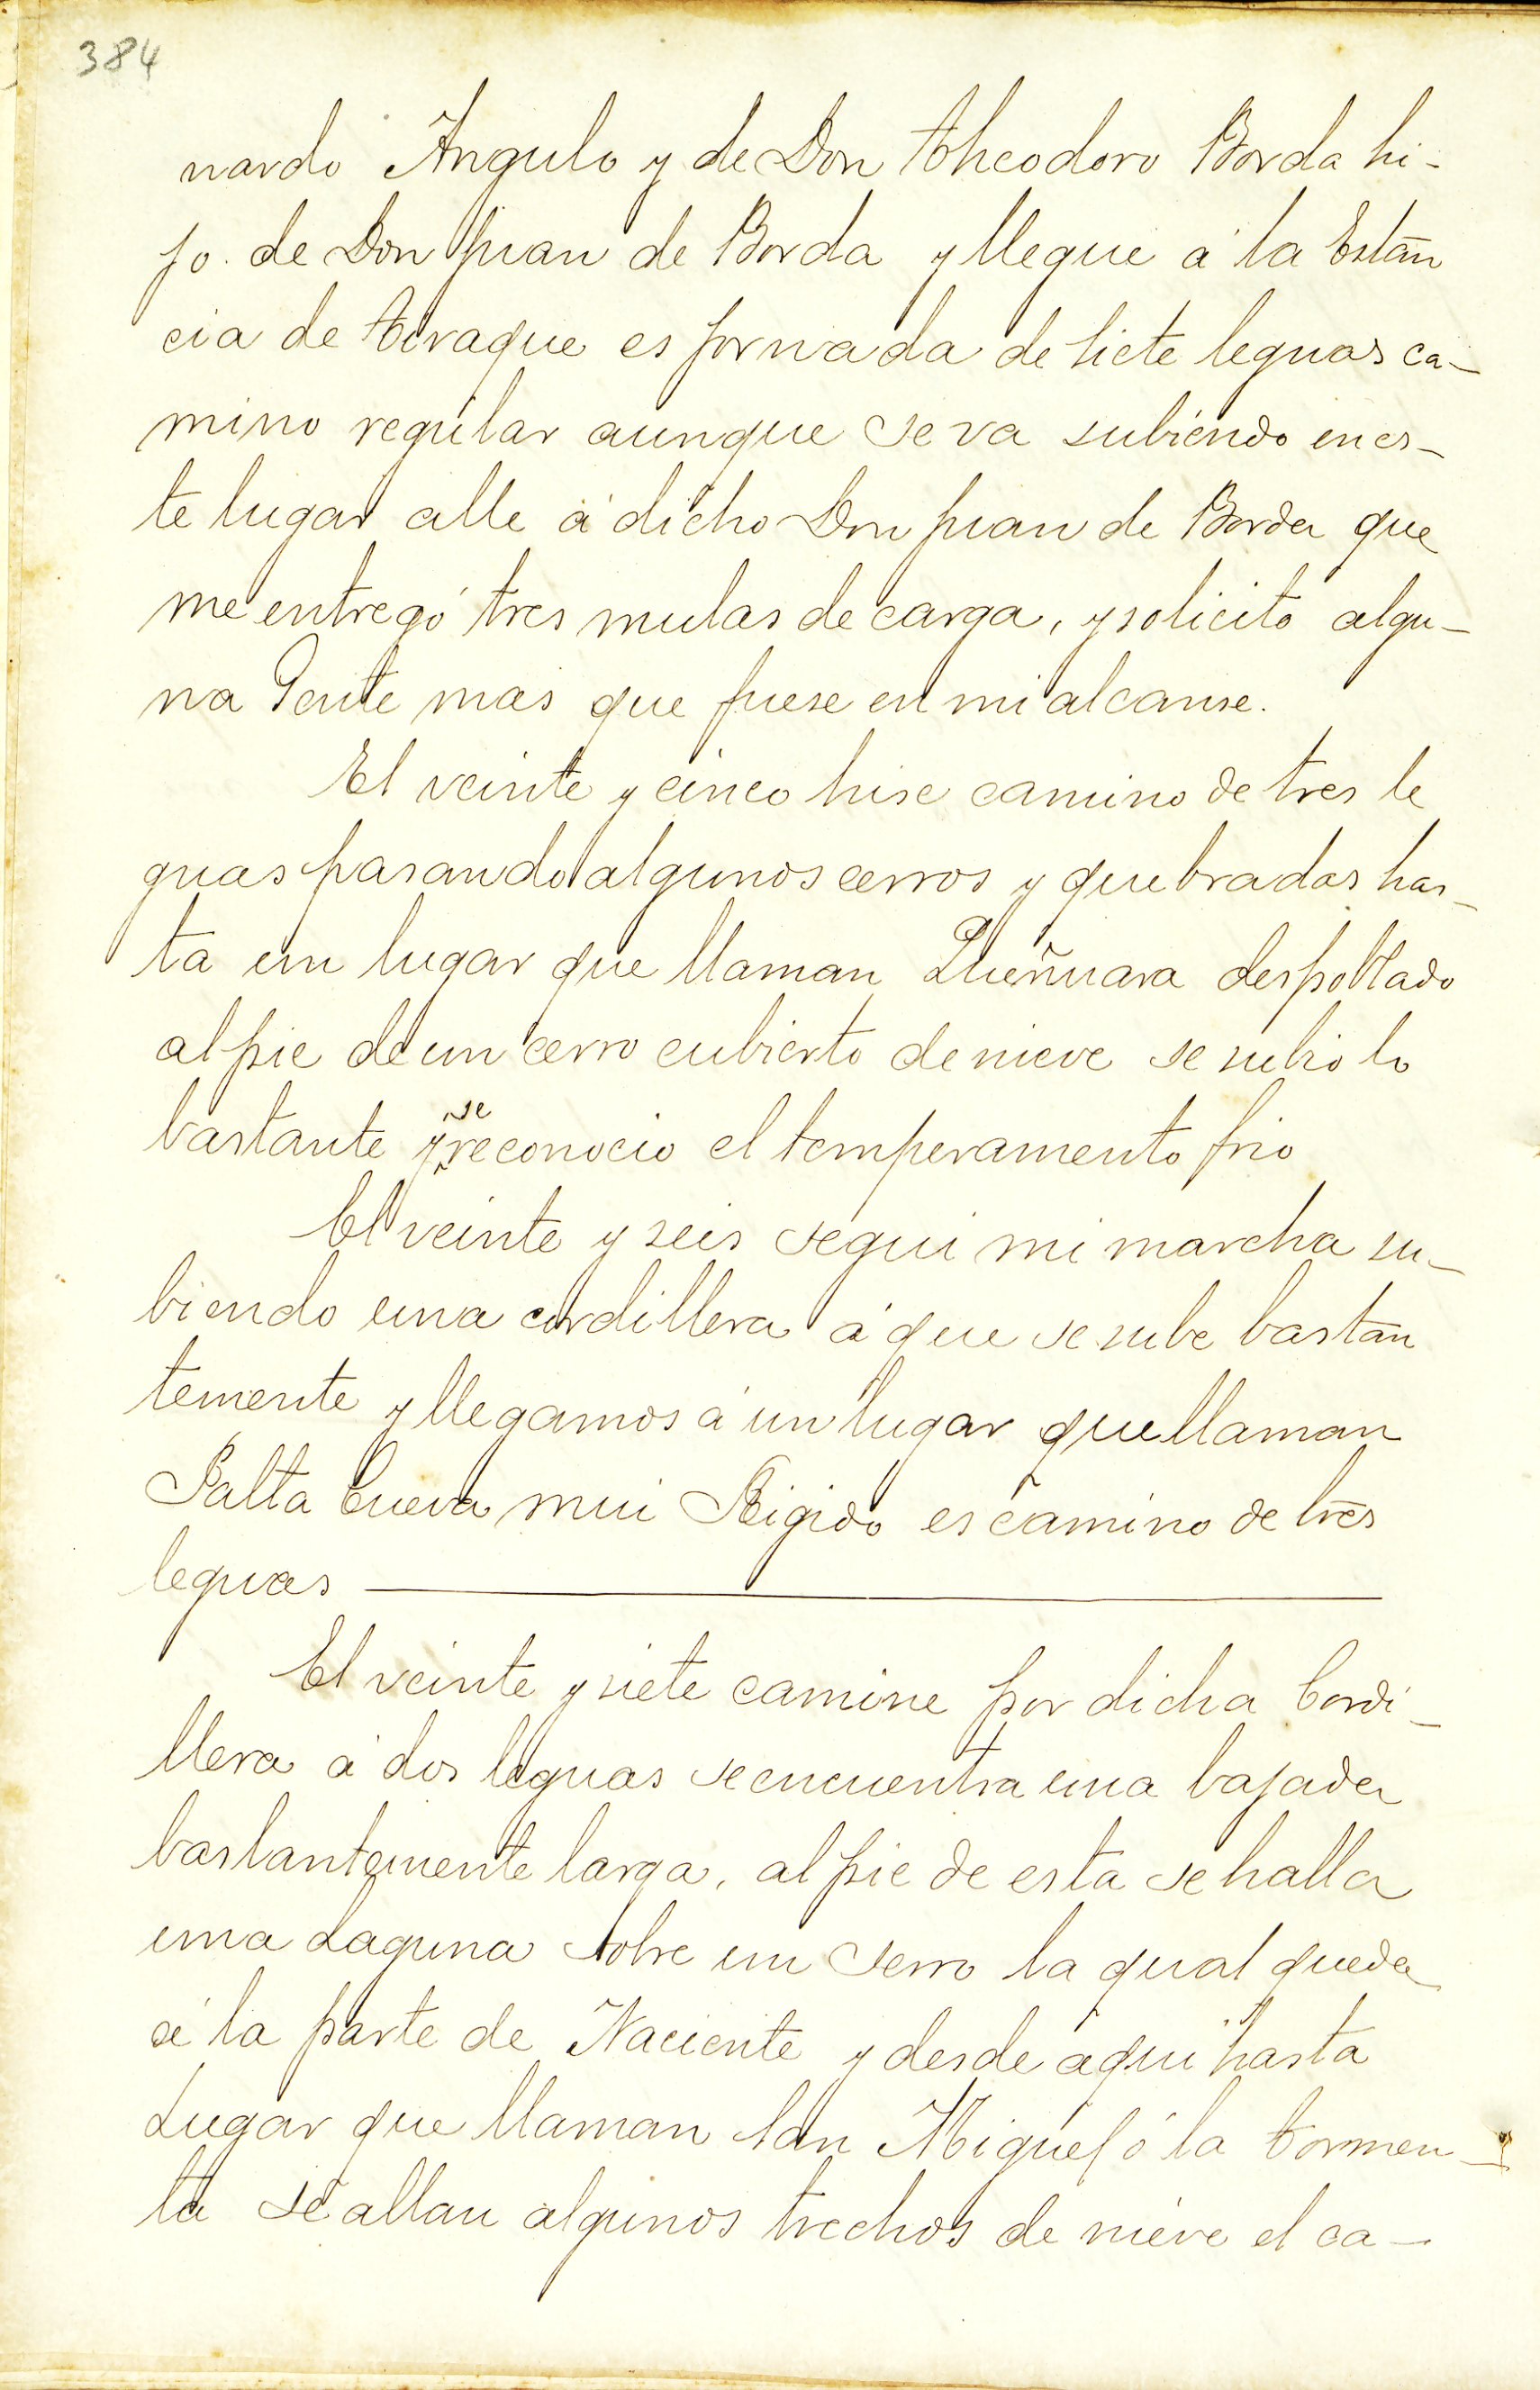 384
nardo Angulo y de Don Theodoro Borda hi-
jo. de Don Juan de Borda y llegue á la Están
cia de Tiraque es jornada de siete leguas ca-
mino regular aunque se va subiendo en es-
te lugar alle á dicho Don Juan de Borda que
me entregó tres mulas de carga, y solicito algu-
na Gente mas que fuese en mi alcanse.
El veinte y cinco hise camino de tres le
guas pasando algunos cerros y quebradas has-
ta un lugar que llaman Lheñuara despoblado
al pie de un cerro cubierto de nieve se subio lo
bastante y se reconocio el temperamento frio
El veinte y seis segui mi marcha su-
biendo una cordillera á que se sube bastan
temente y llegamos á un lugar que llaman
Palta Cueva mui Rigido es camino de tres
leguas
El veinte y siete camine por dicha Cordi-
llera á dos leguas se encuentra una bajada
bastantemente larga, al pie de esta se halla
una Laguna sobre un serro la qual queda
á la parte de Naciente y desde aqui hasta
Lugar que llaman San Miguel ó la tormen-
ta se allan algunos trechos de nieve el ca-